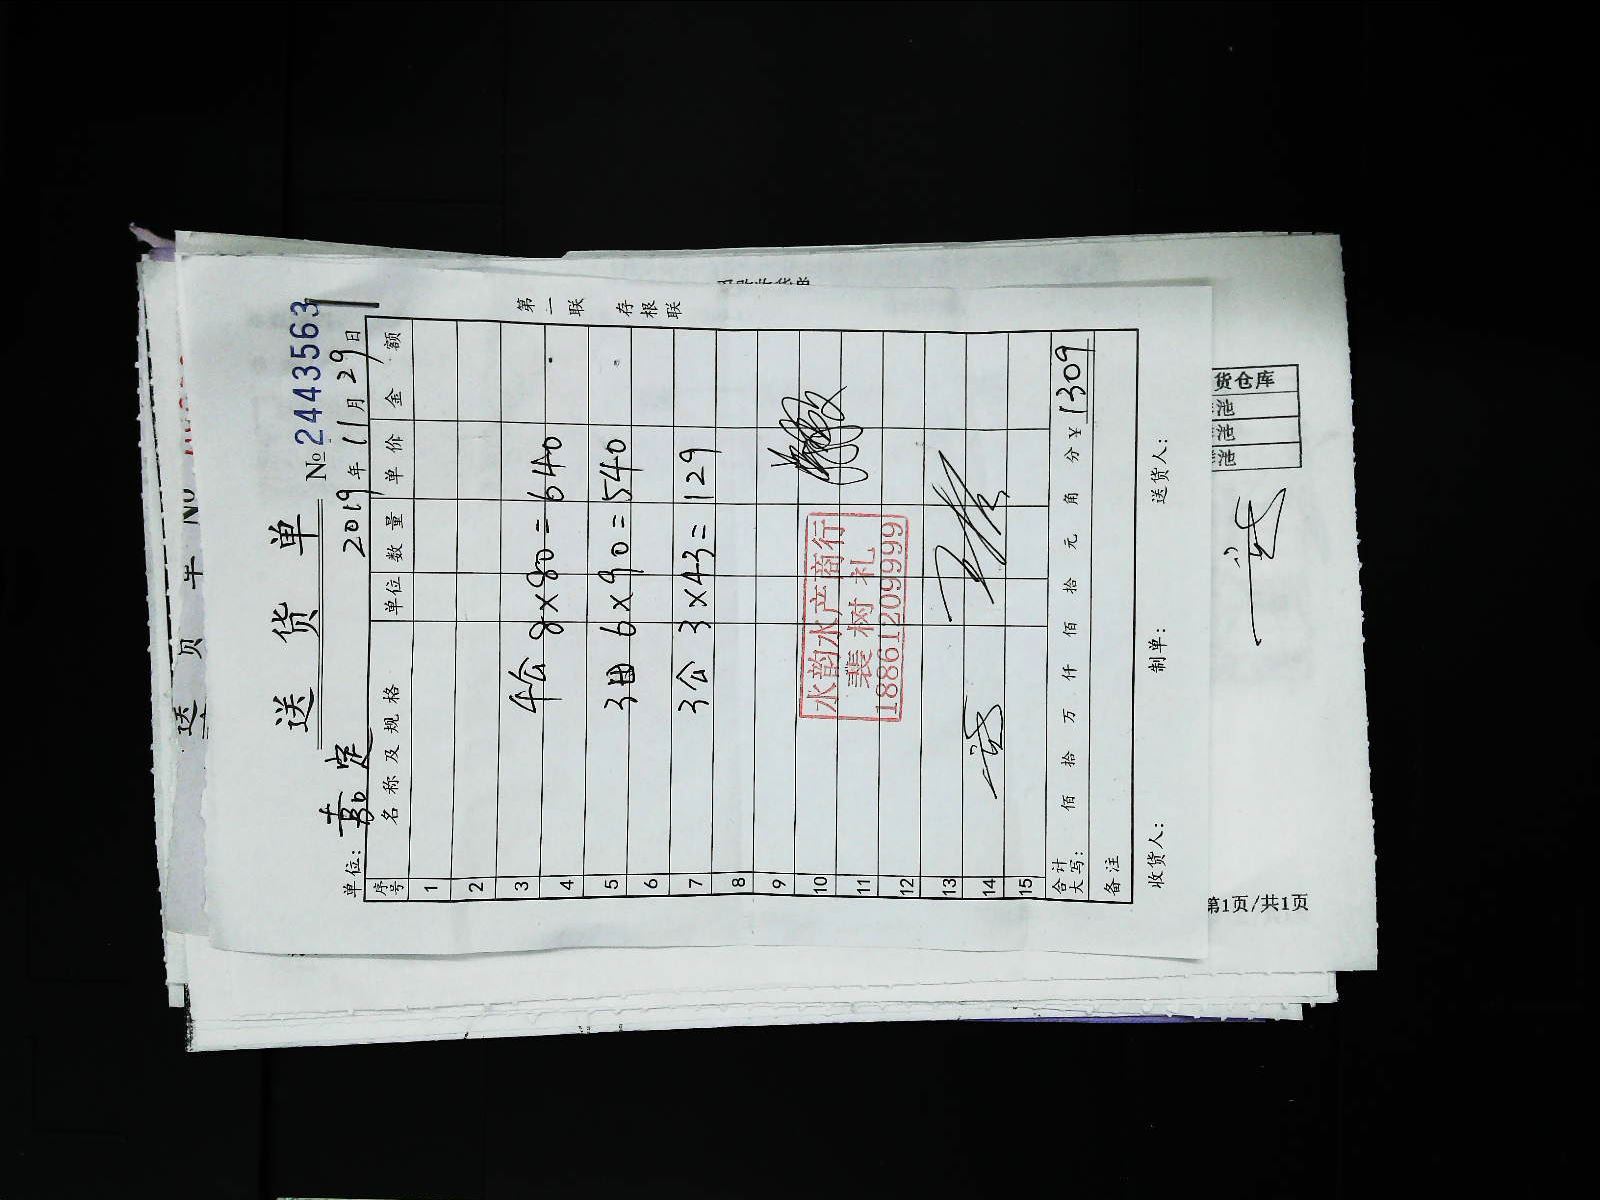 送货单
№ 2443563
单位: 嘉定 2019年11月29日
第一联 存根联
序号 名称及规格 单位 数量 单价 金额
1
2
3 4公 8×80=640
4
5 3母 6×90=540
6
7 3公 3×43=129
8
9
10
11
12
13
14
15
水韵水产商行
裴树礼
18861209999
合计大写: 佰 拾 万 仟 佰 拾 元 角 分 ¥1309
备注
收货人: 制单: 送货人:
货仓库
第1页/共1页